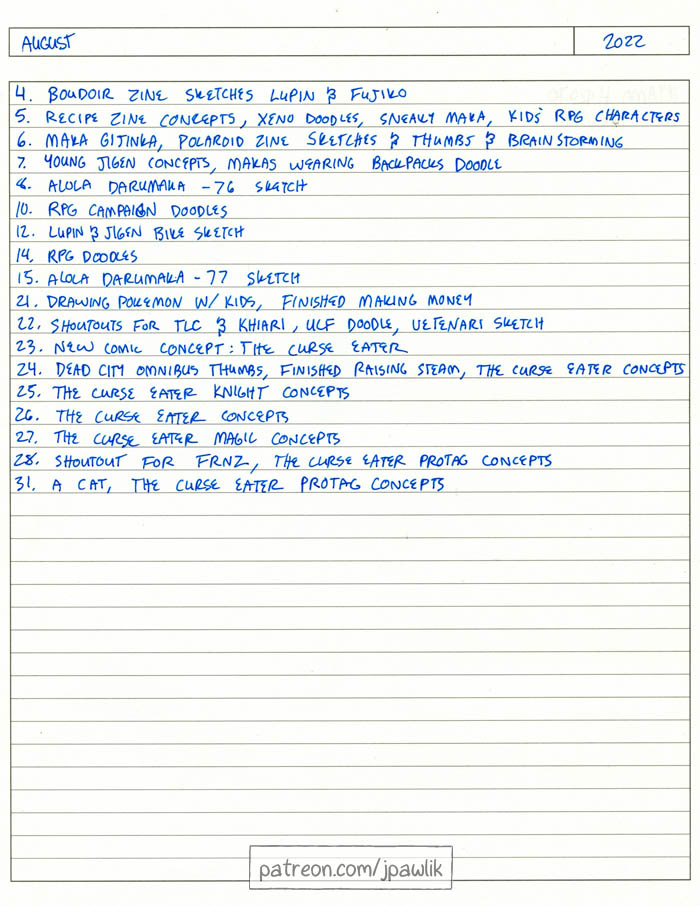 AUGUST 2022
4. BOUDOIR ZINE SKETCHES LUPIN & FUJIKO
5. RECIPE ZINE CONCEPTS, XENO DOODLES, SNEAKY MAKA, KIDS RPG CHARACTERS
6. MAKA GIJINKA, POLAROID ZINE SKETCHES & THUMBS & BRAINSTORMING
7. YOUNG JIGEN CONCEPTS, MAKAS WEARING BACKPACKS DOODLE
8. ALOLA DARUMAKA - 76 SKETCH
10. RPG CAMPAIGN DOODLES
12. LUPIN & JIGEN BIKE SKETCH
14. RPG DOODLES
15. ALOLA DARUMAKA - 77 SKETCH
21. DRAWING POKEMON W/ KIDS, FINISHED MAKING MONEY
22. SHOUTOUTS FOR TLC & KHIARI, ULF DOODLE, VETENARI SKETCH
23. NEW COMIC CONCEPT: THE CURSE EATER
24. DEAD CITY OMNIBUS THUMBS, FINISHED RAISING STEAM, THE CURSE EATER CONCEPTS
25. THE CURSE EATER KNIGHT CONCEPTS
26. THE CURSE EATER CONCEPTS
27. THE CURSE EATER MAGIC CONCEPTS
28. SHOUTOUT FOR FRNZ, THE CURSE EATER PROTAG CONCEPTS
31. A CAT, THE CURSE EATER PROTAG CONCEPTS
patreon.com/jpawlik